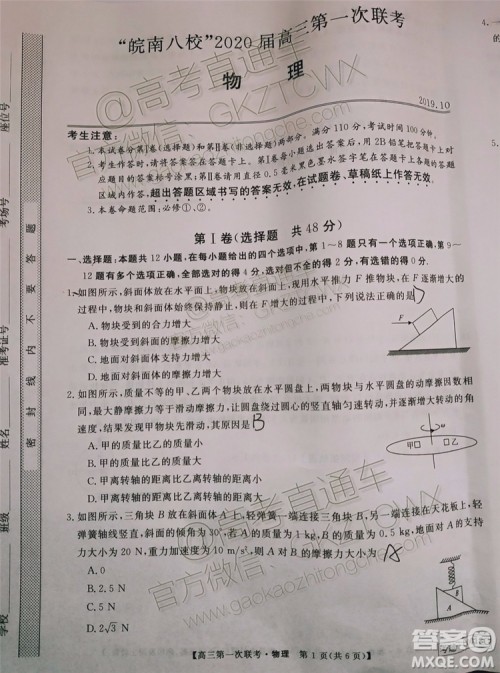 "皖南八校"2020届高三第一次联考
物 理
2019.10
考生注意：
1.本试卷分第Ⅰ卷(选择题)和第Ⅱ卷(非选择题)两部分。满分110分，考试时间90分钟。
2.考生作答时，请将答案答在答题卡上。第Ⅰ卷每小题选出答案后，用2B铅笔把答题卡上对应题目的答案标号涂黑；第Ⅱ卷请用直径0.5毫米黑色墨水签字笔在答题卡上各题的答题区域内作答，超出答题区域书写的答案无效，在试题卷、草稿纸上作答无效。
3.本卷命题范围：必修①、②。
第Ⅰ卷(选择题 共48分)
一、选择题：本题共12小题，在每小题给出的四个选项中，第1～8题只有一个选项正确，第9～
12题有多个选项正确，全部选对的得4分，选对但不全的得2分，有选错的得0分。
1.如图所示，斜面体放在水平面上，物块放在斜面上，现用水平推力F推物块，在F逐渐增大的
过程中，物块和斜面体始终保持静止，则在F增大的过程中，下列说法正确的是 D
A.物块受到的合力增大
B.物块受到的摩擦力增大
C.地面对斜面体支持力增大
D.地面对斜面体摩擦力增大
F
2.如图所示，质量不等的甲、乙两个物块放在水平圆盘上，两物块与水平圆盘的动摩擦因数相
等，最大静摩擦力等于滑动摩擦力，让圆盘绕过圆心的竖直轴匀速转动，并逐渐增大转动的角
速度，结果发现甲物块先滑动，其原因是 B
A.甲的质量比乙的质量小
B.甲的质量比乙的质量大
C.甲离转轴的距离比乙离转轴的距离小
D.甲离转轴的距离比乙离转轴的距离大
甲 乙
3.如图所示，三角块B放在水平面上，轻弹簧一端连接在物块A上，另一端连接在天花板上，轻
弹簧轴线竖直，斜面的倾角为30°，若A的质量为1 kg，B的质量为0.5 kg，地面对B的支持
力大小为20 N，重力加速度为10 m/s²，则A、B间的摩擦力大小为 A
A.0
B.2.5 N
C.5 N
D.2√3 N
A
B
【高三第一次联考·物理 第1页(共6页)】
座位号
考场号
准考证号
姓名
班级
学校
密封线内不要答题
@高考直通车
官方微信：GKZTCWX
www.gaokaozhitongche.com
作业帮
MXQE.COM